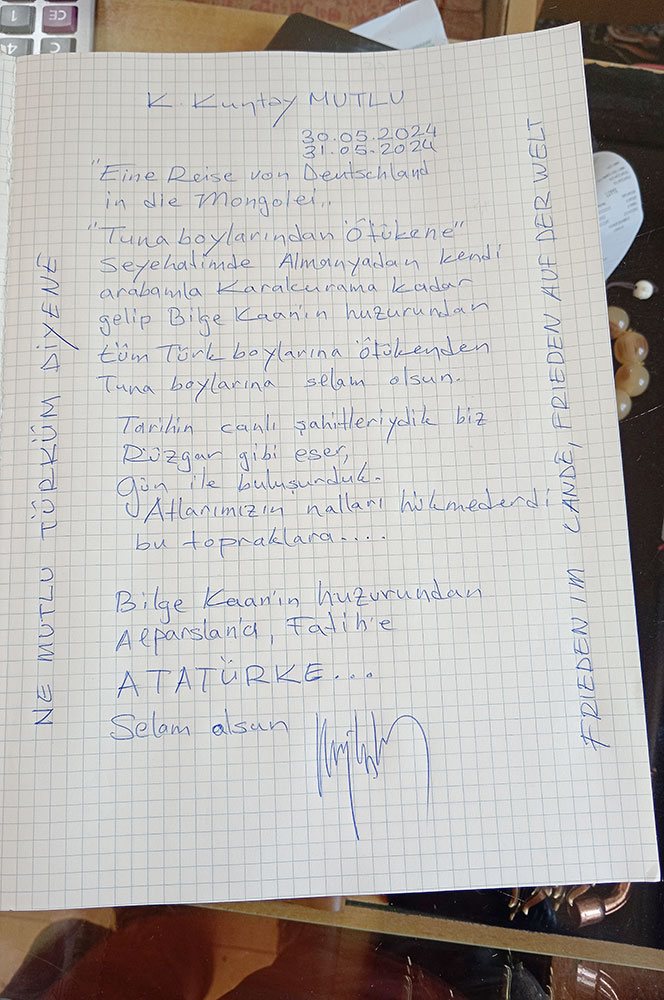 K. Kuntay MUTLU
30.05.2024
31.05.2024
"Eine Reise von Deutschland
in die Mongolei,,
"Tuna boylarından Ötükene"
Seyehatimde Almanyadan kendi
arabamla Karakurama kadar
gelip Bilge Kaan'ın huzurundan
tüm Türk boylarına Ötükenden
Tuna boylarına selam olsun.
Tarihin canlı şahitleriydik biz
Rüzgar gibi eser,
Gün ile buluşurduk.
Atlarımızın nalları hükmederdi
bu topraklara....
Bilge Kaan'ın huzurundan
Alparslan'a, Fatih'e
ATATÜRKE...
Selam olsun
NE MUTLU TÜRKÜM DİYENE
FRIEDEN IM LANDE, FRIEDEN AUF DER WELT
CE
1
4